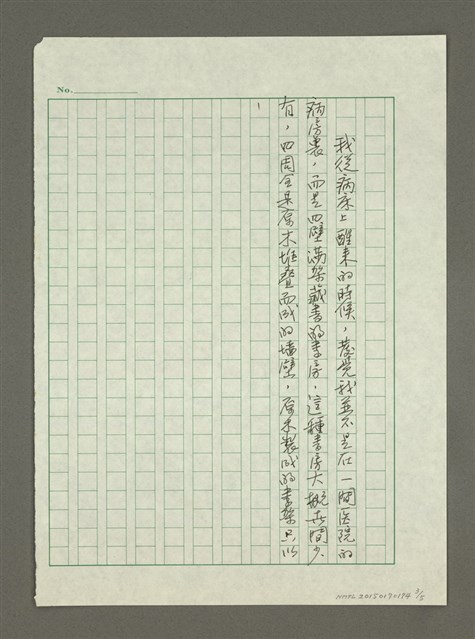 No.
我從病床上醒来的時候，發覺我並不是在一間医院的
病房裏，而是四壁滿架藏書的書房，這種書房大概世間少
有，四周全是原木堆疊而成的墻壁，原木製成的書架只以
NMTL20150170174 3/5